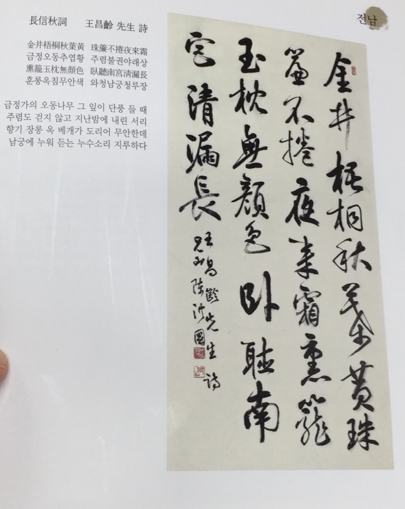 長信秋詞 王昌齡 先生 詩
金井梧桐秋葉黃 珠簾不捲夜來霜
금정오동추엽황 주렴불권야래상
熏籠玉枕無顔色 臥聽南宮淸漏長
훈롱옥침무안색 와청남궁청루장
금정가의 오동나무 그 잎이 단풍 들 때
주렴도 걷지 않고 지난밤에 내린 서리
향기 장롱 옥 베개가 도리어 무안한데
남궁에 누워 듣는 누수소리 지루하다
전남
金井梧桐秋葉黃珠
簾不捲夜來霜熏籠
玉枕無顔色臥聽南
宮淸漏長
王昌齡先生詩